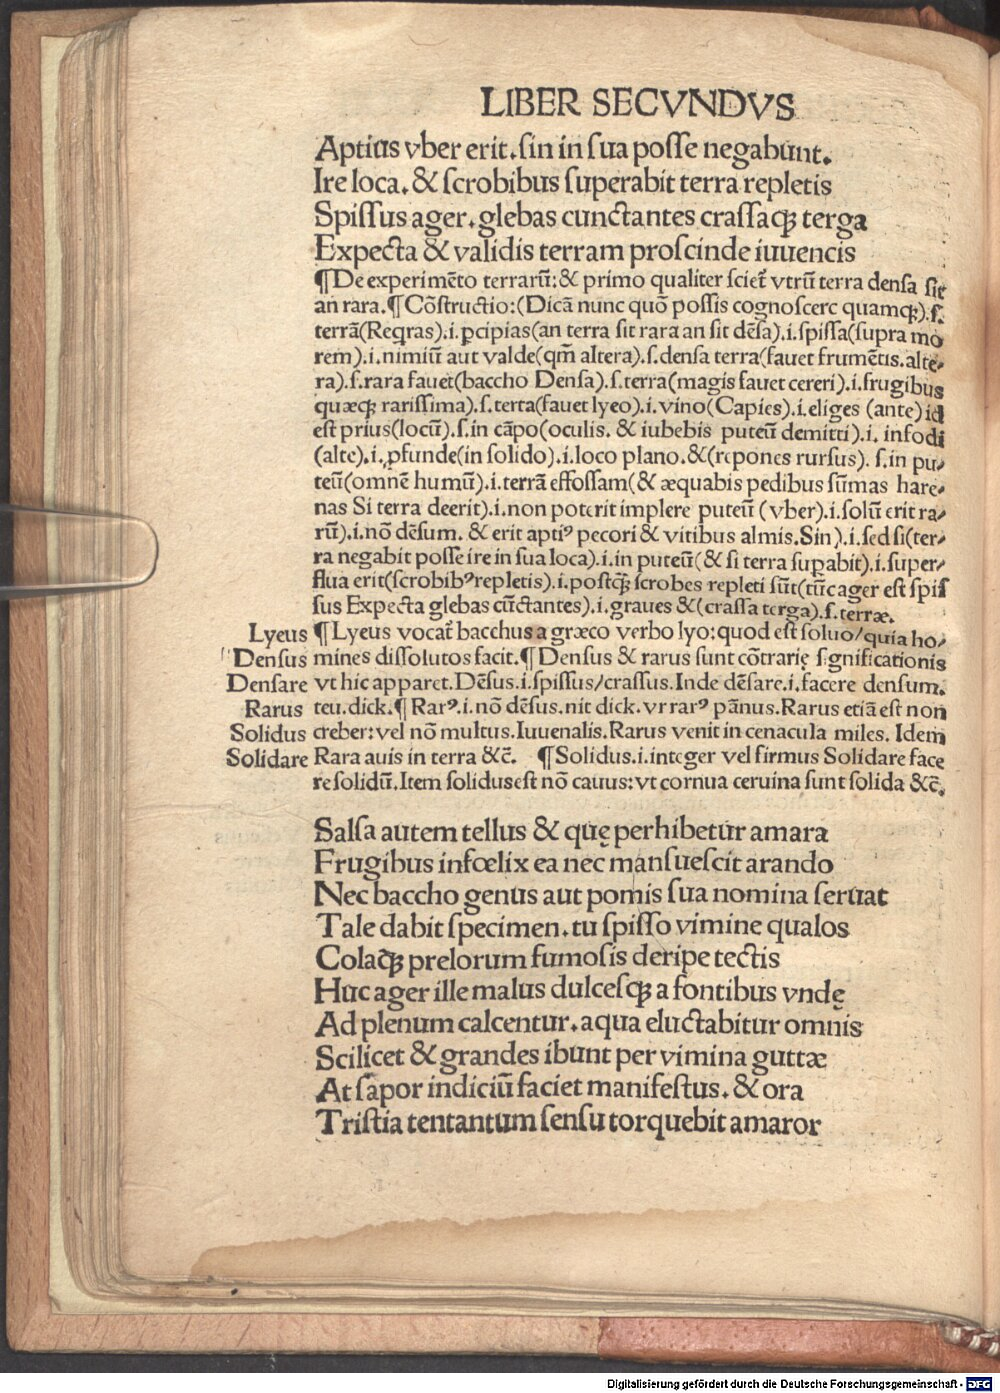 LIBER SECVNDVS
Aptius vber erit.sin in sua posse negabunt.
Ire loca.& scrobibus superabit terra repletis
Spissus ager.glebas cunctantes crassaqꝫ terga
Expecta & validis terram proscinde iuuencis
¶De experimēto terrarū:& primo qualiter sciet̃ vtrū terra densa sit
an rara.¶Cōstructio:(Dicā nunc quō possis cognoscere quamqꝫ).s.
terrā(Reqras).i.ꝑcipias(an terra sit rara an sit dēsa).i.spissa(supra mo
rem).i.nimiū aut valde(qm̄ altera).s.densa terra(fauet frumētis.alte⸗
ra).s.rara fauet(baccho Densa).s.terra(magis fauet cereri).i.frugibus
quæqꝫ rarissima).s.terta(fauet lyeo).i.vino(Capies).i.eliges (ante)id
est prius(locū).s.in cāpo(oculis. & iubebis puteū demitti).i. infodi
(alte).i.ꝓfunde(in solido).i.loco plano.&(repones rursus). s.in pu⸗
teū(omnē humū).i.terrā effossam(& æquabis pedibus sūmas hare⸗
nas Si terra deerit).i.non poterit implere puteū (vber).i.solū erit ra⸗
rū).i.nō dēsum. & erit aptiꝰ pecori & vitibus almis.Sin).i.sed si(ter⸗
ra negabit posse ire in sua loca).i.in puteū(& si terra suꝑabit).i.super⸗
flua erit(scrobibꝰrepletis).i.postqꝫ scrobes repleti sūt(tūc ager est spis
sus Expecta glebas cūctantes).i.graues &(crassa terga).s.terræ.
Lyeus ¶Lyeus vocat̃ bacchus a græco verbo lyo:quod est soluo/quia ho⸗
Densus mines dissolutos facit.¶Densus & rarus sunt cōtrarię significationis
Densare vt hic apparet.Dēsus.i.spissus/crassus.Inde dēsare.i.facere densum.
Rarus teu.dick.¶Rarꝰ.i.nō dēsus.nit dick.vt rarꝰ pānus.Rarus etiā est non
Solidus creber:vel nō multus.Iuuenalis.Rarus venit in cenacula miles. Idem
Solidare Rara auis in terra &c̄. ¶Solidus.i.integer vel firmus Solidare face
re solidū.Item solidus est nō cauus:vt cornua ceruina sunt solida &c̄.
Salsa autem tellus & quę perhibetur amara
Frugibus infœlix ea nec mansuescit arando
Nec baccho genus aut pomis sua nomina seruat
Tale dabit specimen.tu spisso vimine qualos
Colaqꝫ prelorum fumosis deripe tectis
Huc ager ille malus dulcesqꝫ a fontibus vndę
Ad plenum calcentur.aqua eluctabitur omnis
Scilicet & grandes ibunt per vimina guttæ
At sapor indiciū faciet manifestus.& ora
Tristia tentantum sensu torquebit amaror
Digitalisierung gefördert durch die Deutsche Forschungsgemeinschaft - DFG